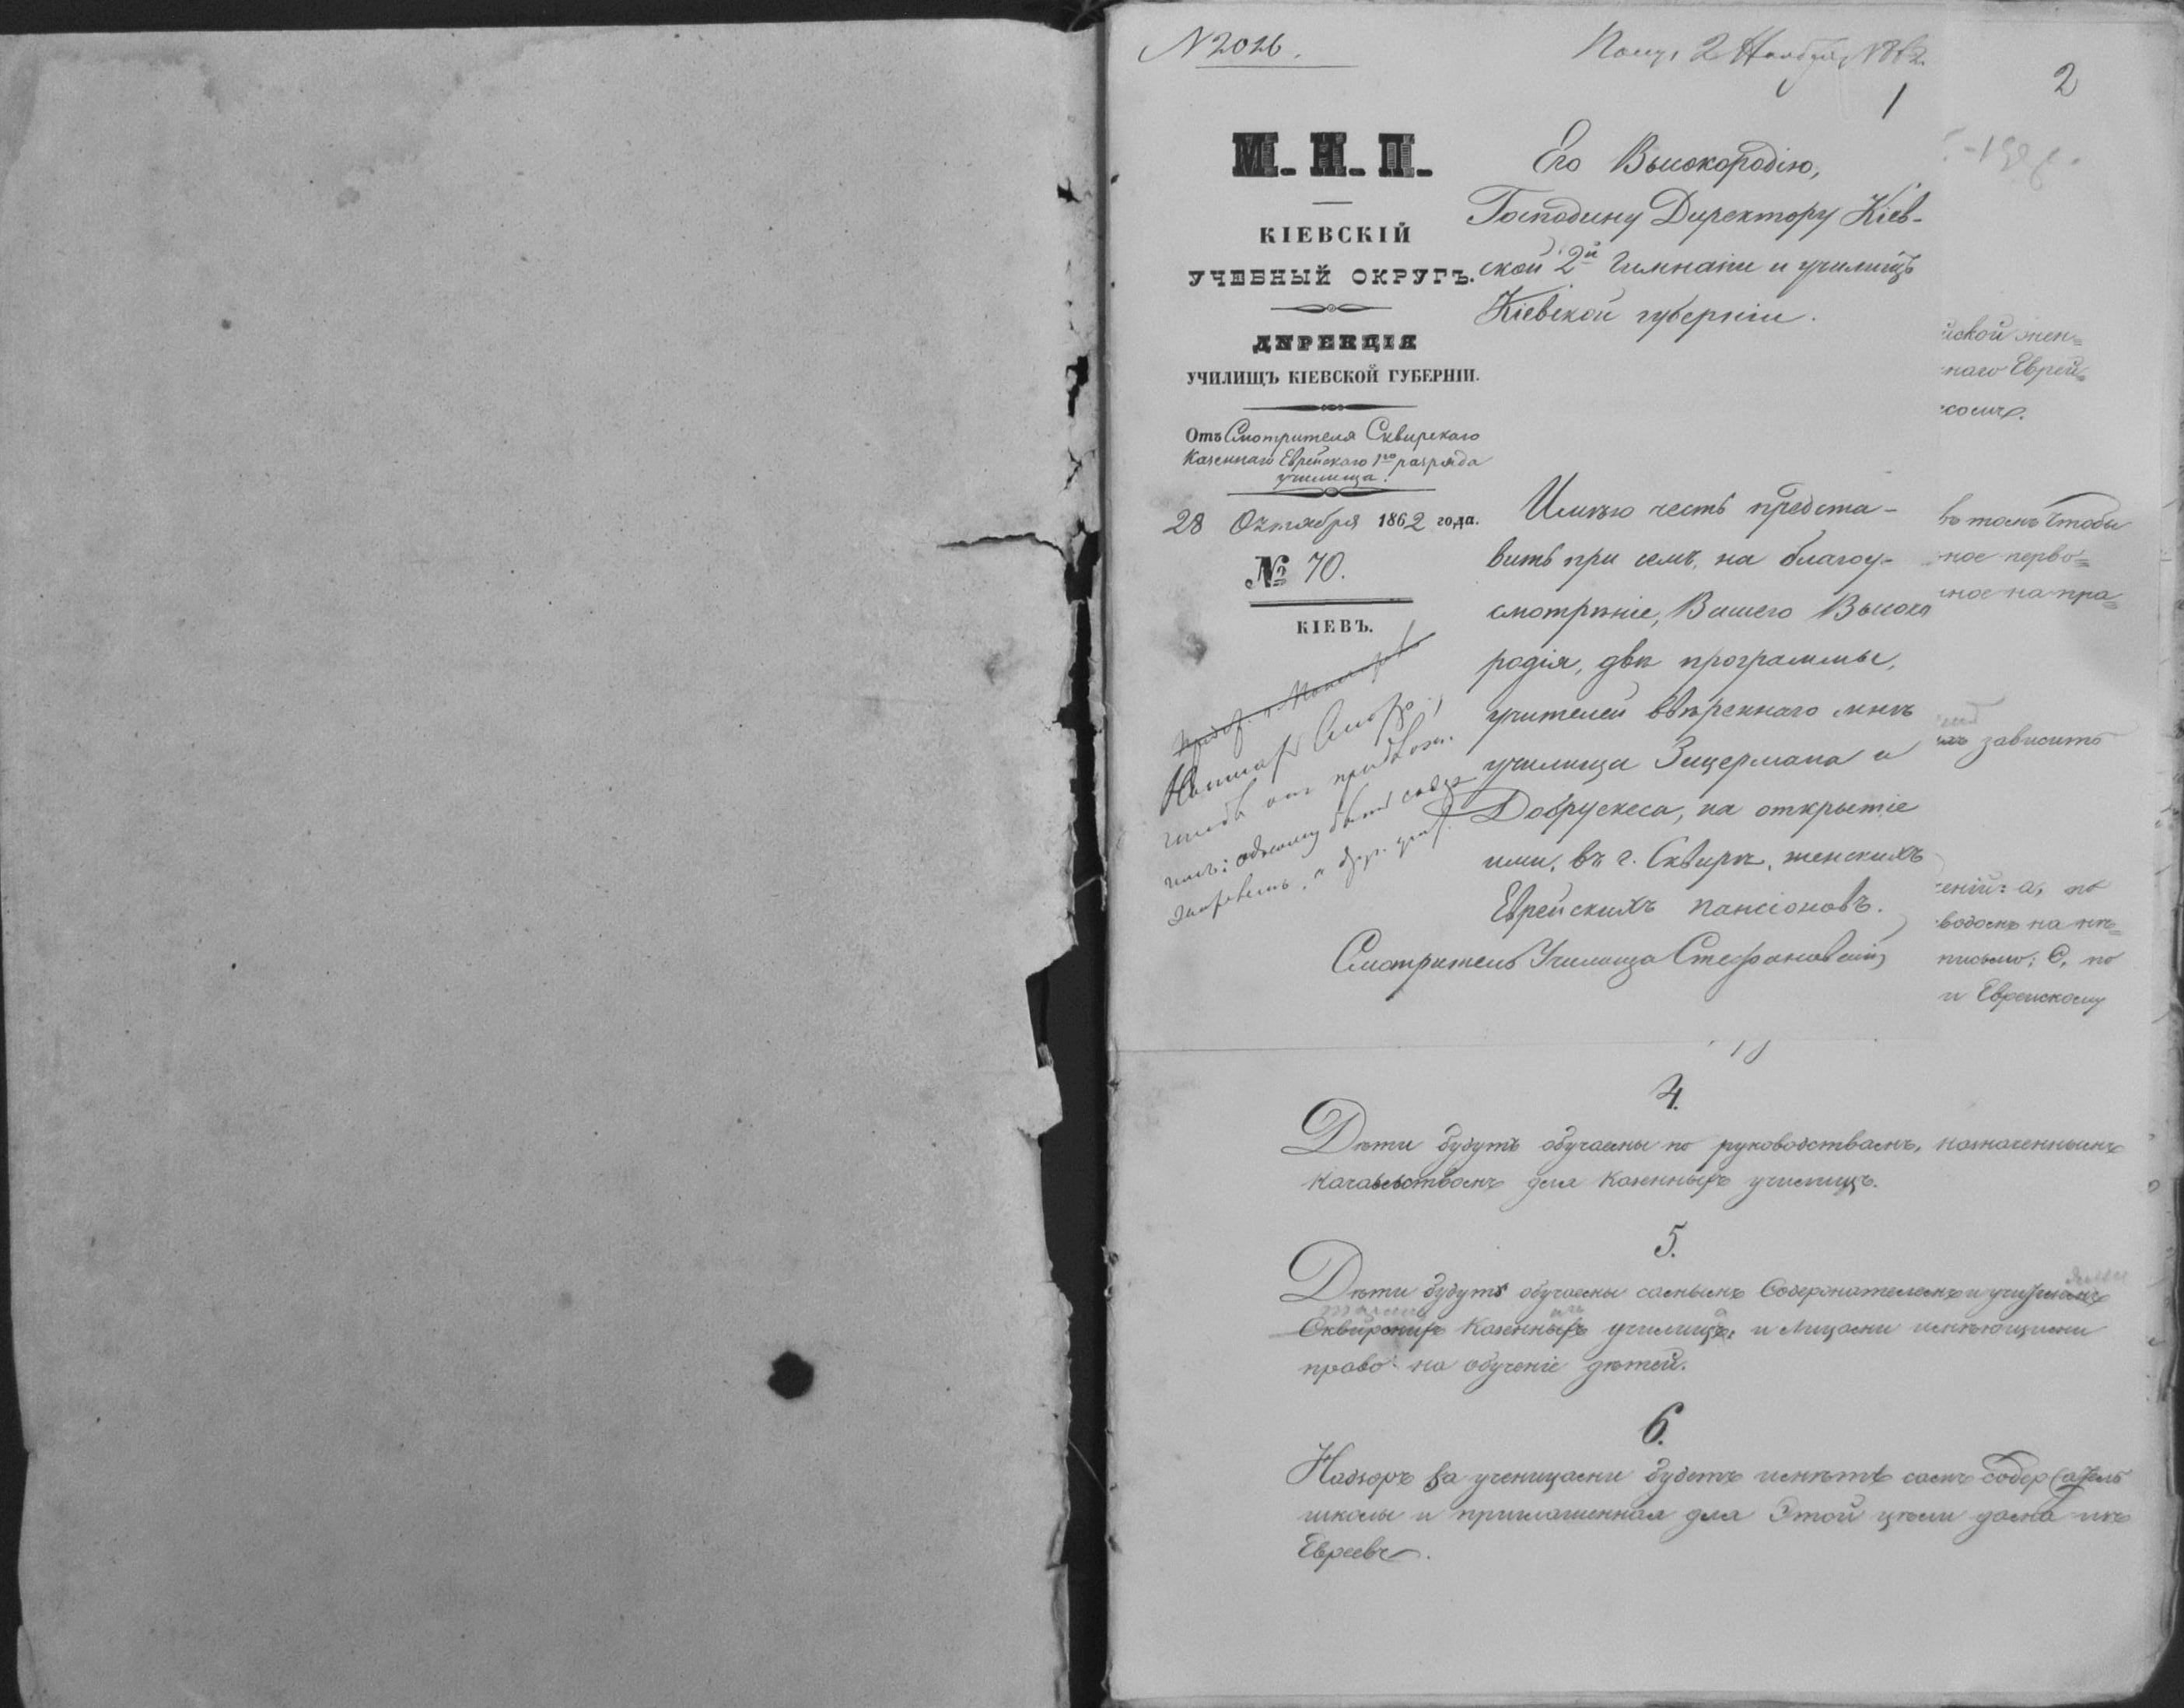 N 2026.
Получ. 2 Ноября 1862.
1
2
М. Н. П.
КІЕВСКІЙ
УЧЕБНЫЙ ОКРУГЪ.
ДИРЕКЦІЯ
УЧИЛИЩЪ КІЕВСКОЙ ГУБЕРНІИ.
Отъ Смотрителя Сквирскаго
Казеннаго Еврейскаго 1го разряда
училища.
28 Октября 1862 года.
№ 70.
КІЕВЪ.
Его Высокородію,
Господину Директору Кіев-
ской 2й Гимназіи и училищъ
Кіевской губерніи.
Имѣю честь предста-
вить при семъ, на благоу-
смотрѣніе, Вашего Высоко
родія, двѣ программы,
учителей ввѣреннаго мнѣ
училища Зицермана и
Добрускеса, на открытіе
ими, въ г. Сквирѣ, женскихъ
Еврейскихъ пансіоновъ.
Смотритель Училища Стефановскій
йской жен=
наго Еврей=
въ томъ чтобы
ное перво=
ное на пра=
зависитъ
еній: а, по
водомъ на нѣ=
письмо; С, по
и Еврейскому
4.
Дѣти будутъ обучаемы по руководствамъ, назначеннымъ
началъствомъ для казенныхъ училищъ.
5.
Дѣти будутъ обучаемы самымъ Содержателемъ и учителями
Сквирскихъ Казенныхъ училищъ, и Лицами имѣющими
право на обученіе дѣтей.
6.
Надзоръ за ученицами будетъ имѣть самъ содержатель
школы и приглашенная для Этой цѣли дама изъ
Евреевъ.